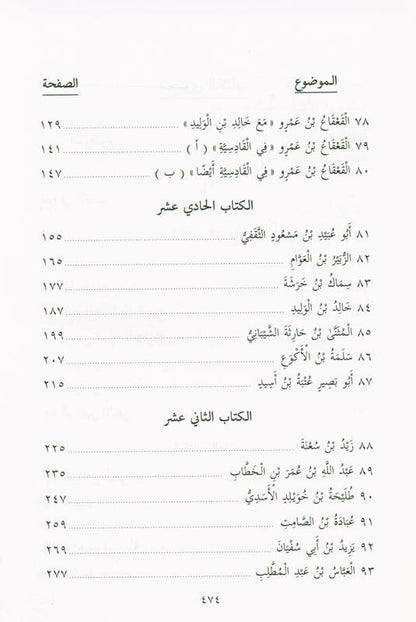 الموضوع الصفحة
٧٨ الْقَعْقَاعُ بْنُ عَمْرِو « مَعَ خَالِدِ بْنِ الْوَلِيدِ » ١٢٩
٧٩ الْقَعْقَاعُ بْنُ عَمْرِو « فِي الْقَادِسِيَّةِ » ( أ ) ١٤١
٨٠ الْقَعْقَاعُ بْنُ عَمْرِو « فِي الْقَادِسِيَّةِ أَيْضًا » ( ب ) ١٤٧
الكتاب الحادي عشر
٨١ أَبُو عُبَيْدِ بْنُ مَسْعُودِ الثَّقَفِيُّ ١٥٥
٨٢ الزُّبَيْرُ بْنُ الْعَوَّامِ ١٦٥
٨٣ سِمَاكُ بْنُ خَرَشَةَ ١٧٧
٨٤ خَالِدُ بْنُ الْوَلِيدِ ١٨٧
٨٥ الْمُثَنَّى بْنُ حَارِثَةَ الشَّيْبَانِيُّ ١٩٩
٨٦ سَلَمَةُ بْنُ الْأَكْوَعِ ٢٠٧
٨٧ أَبُو بَصِيرٍ عُتْبَةُ بْنُ أَسِيدِ ٢١٥
الكتاب الثاني عشر
٨٨ زَيْدُ بْنُ سُعْنَةَ ٢٢٥
٨٩ عَبْدُ اللَّهِ بْنُ عُمَرَ بْنِ الْخَطَّابِ ٢٣٥
٩٠ طُلَيْحَةُ بْنُ خُوَيْلِدِ الْأَسَدِيُّ ٢٤٧
٩١ عُبَادَةُ بْنُ الصَّامِتِ ٢٥٩
٩٢ يَزِيدُ بْنُ أَبِي سُفْيَانَ ٢٦٩
٩٣ الْعَبَّاسُ بْنُ عَبْدِ الْمُطَّلِبِ ٢٧٧
٤٧٤